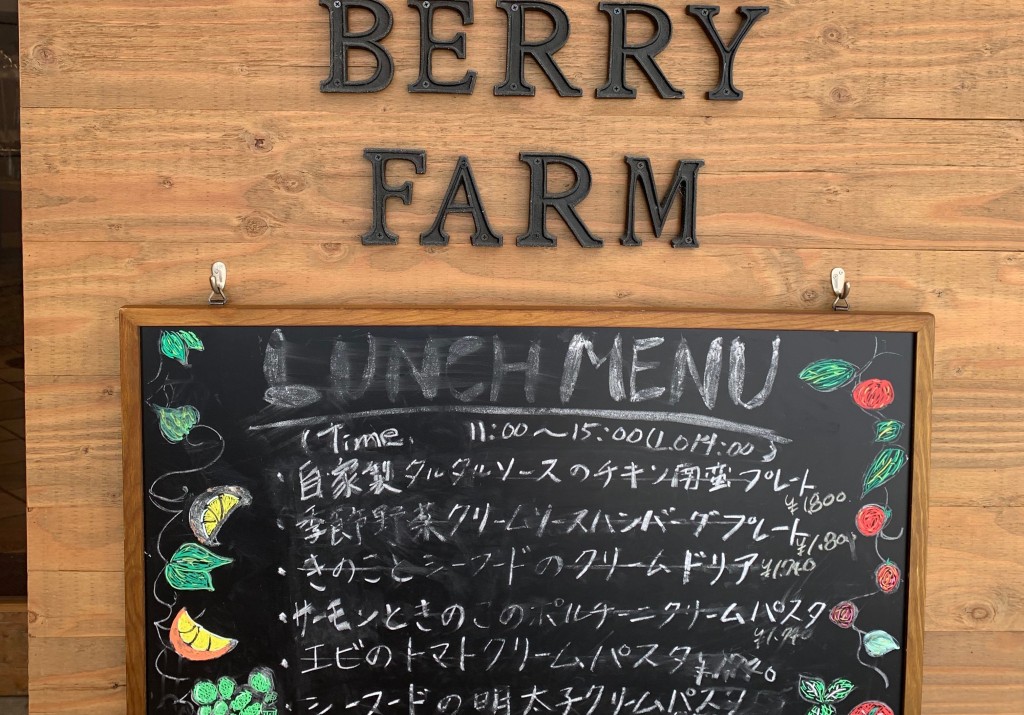 BERRY
FARM
LUNCH MENU
Time 11:00～15:00(L.O14:00)
・自家製タルタルソースのチキン南蛮プレート
¥1,800
・季節野菜クリームソースハンバーグプレート
¥1,80
・きのことシーフードのクリームドリア ¥1,740
・サーモンときのこのポルチーニクリームパスタ
¥1,740
・エビのトマトクリームパスタ
・シーフードの明太子クリームパスタ